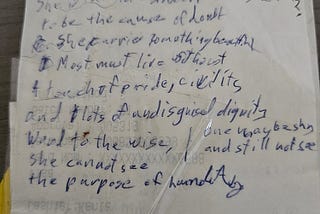 She
to be the cause of doubt
She carries something beautiful
Most must live without
A touch of pride, civility
and lots of undisguised dignity
Word to the wise
one may be shy
and still not see
she cannot see
the purpose of humility